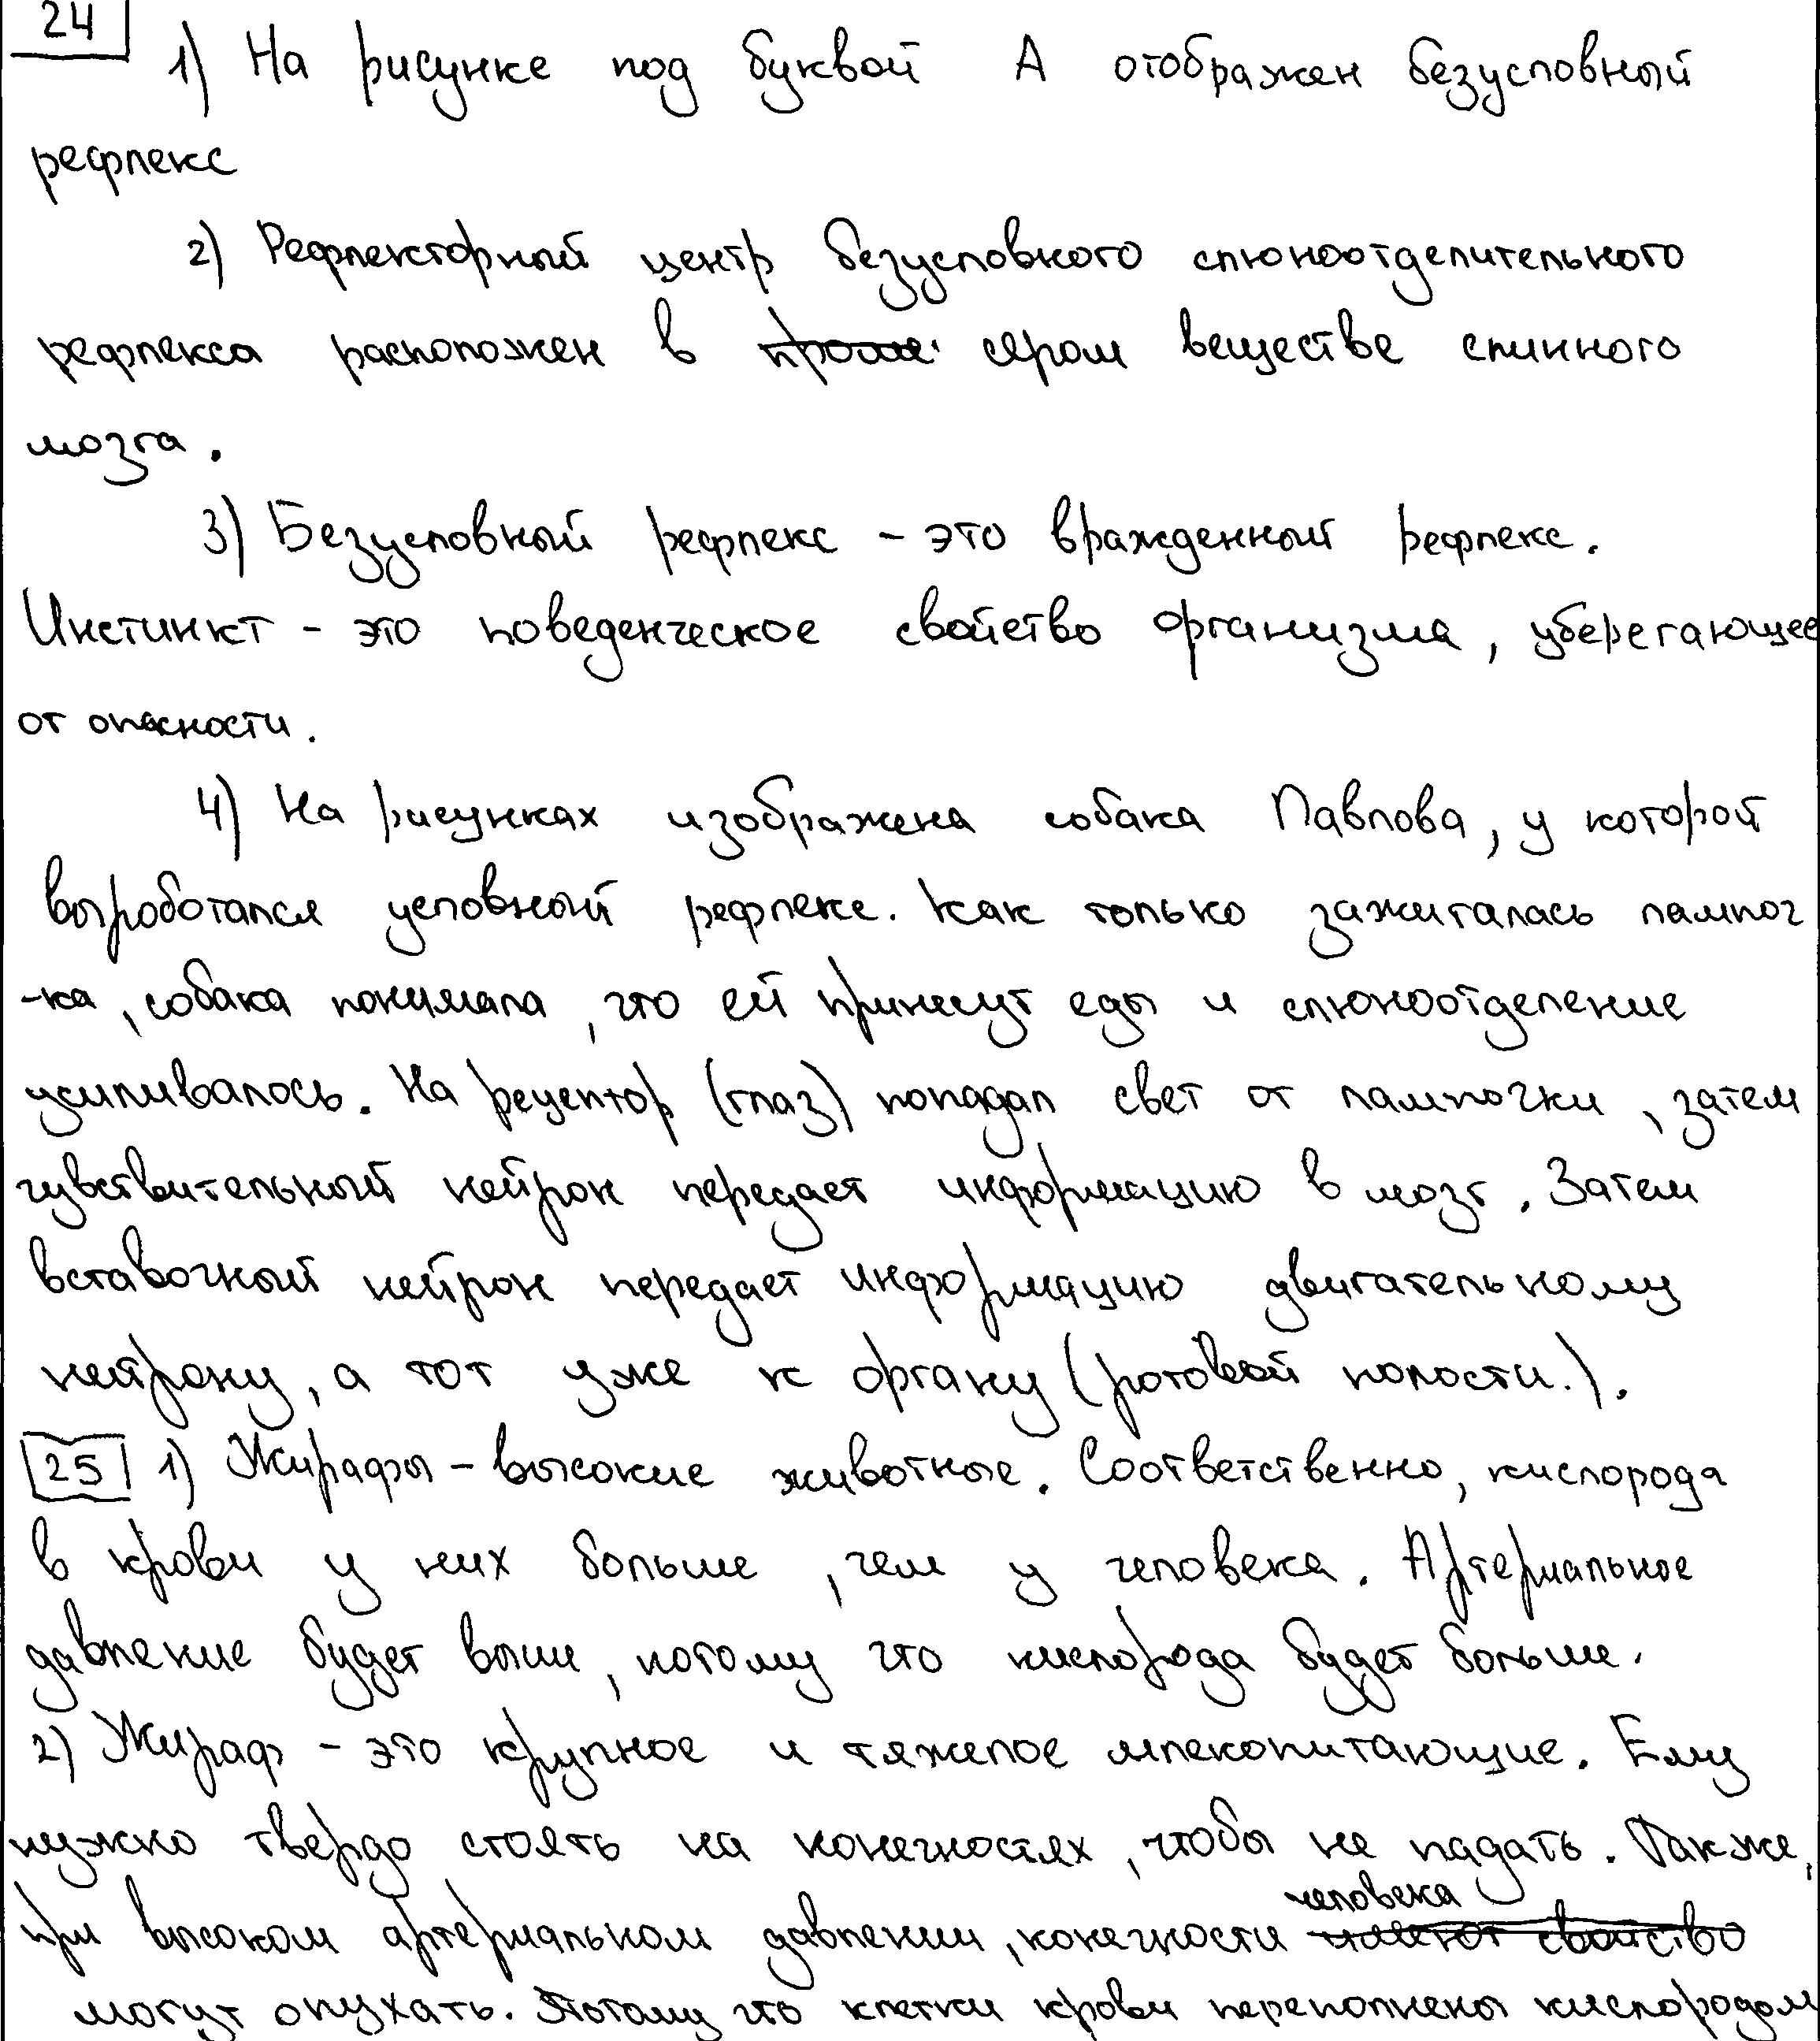 24
1) На рисунке под буквой А отображен безусловный
рефлекс
2) Рефлекторный центр безусловного слюноотделительного
рефлекса расположен в сером веществе спинного
мозга.
3) Безусловный рефлекс - это врожденный рефлекс.
Инстинкт - это поведенческое свойство организма, уберегающее
от опасности.
4) На рисунках изображена собака Павлова, у которой
выроботался условный рефлекс. Как только зажигалась лампоч
-ка, собака понимала, что ей принесут еды и слюноотделение
усиливалось. На рецептор (глаз) попадал свет от лампочки, затем
чувствительный нейрон передает информацию в мозг. Затем
вставочный нейрон передает информацию двигательному
нейрону, а тот уже к органу (ротовой полости.).
25 1) Жирафы - высокие животные. Соответственно, кислорода
в крови у них больше, чем у человека. Артериальное
давление будет выше, потому что кислорода будет больше.
2) Жираф - это крупное и тяжелое млекопитающие. Ему
нужно твердо стоять на конечностях, чтобы не падать. Также,
при высоком артериальном давлении, конечности человека имеют свойство
могут опухать. Потому что клетки крови переполнены кислородом